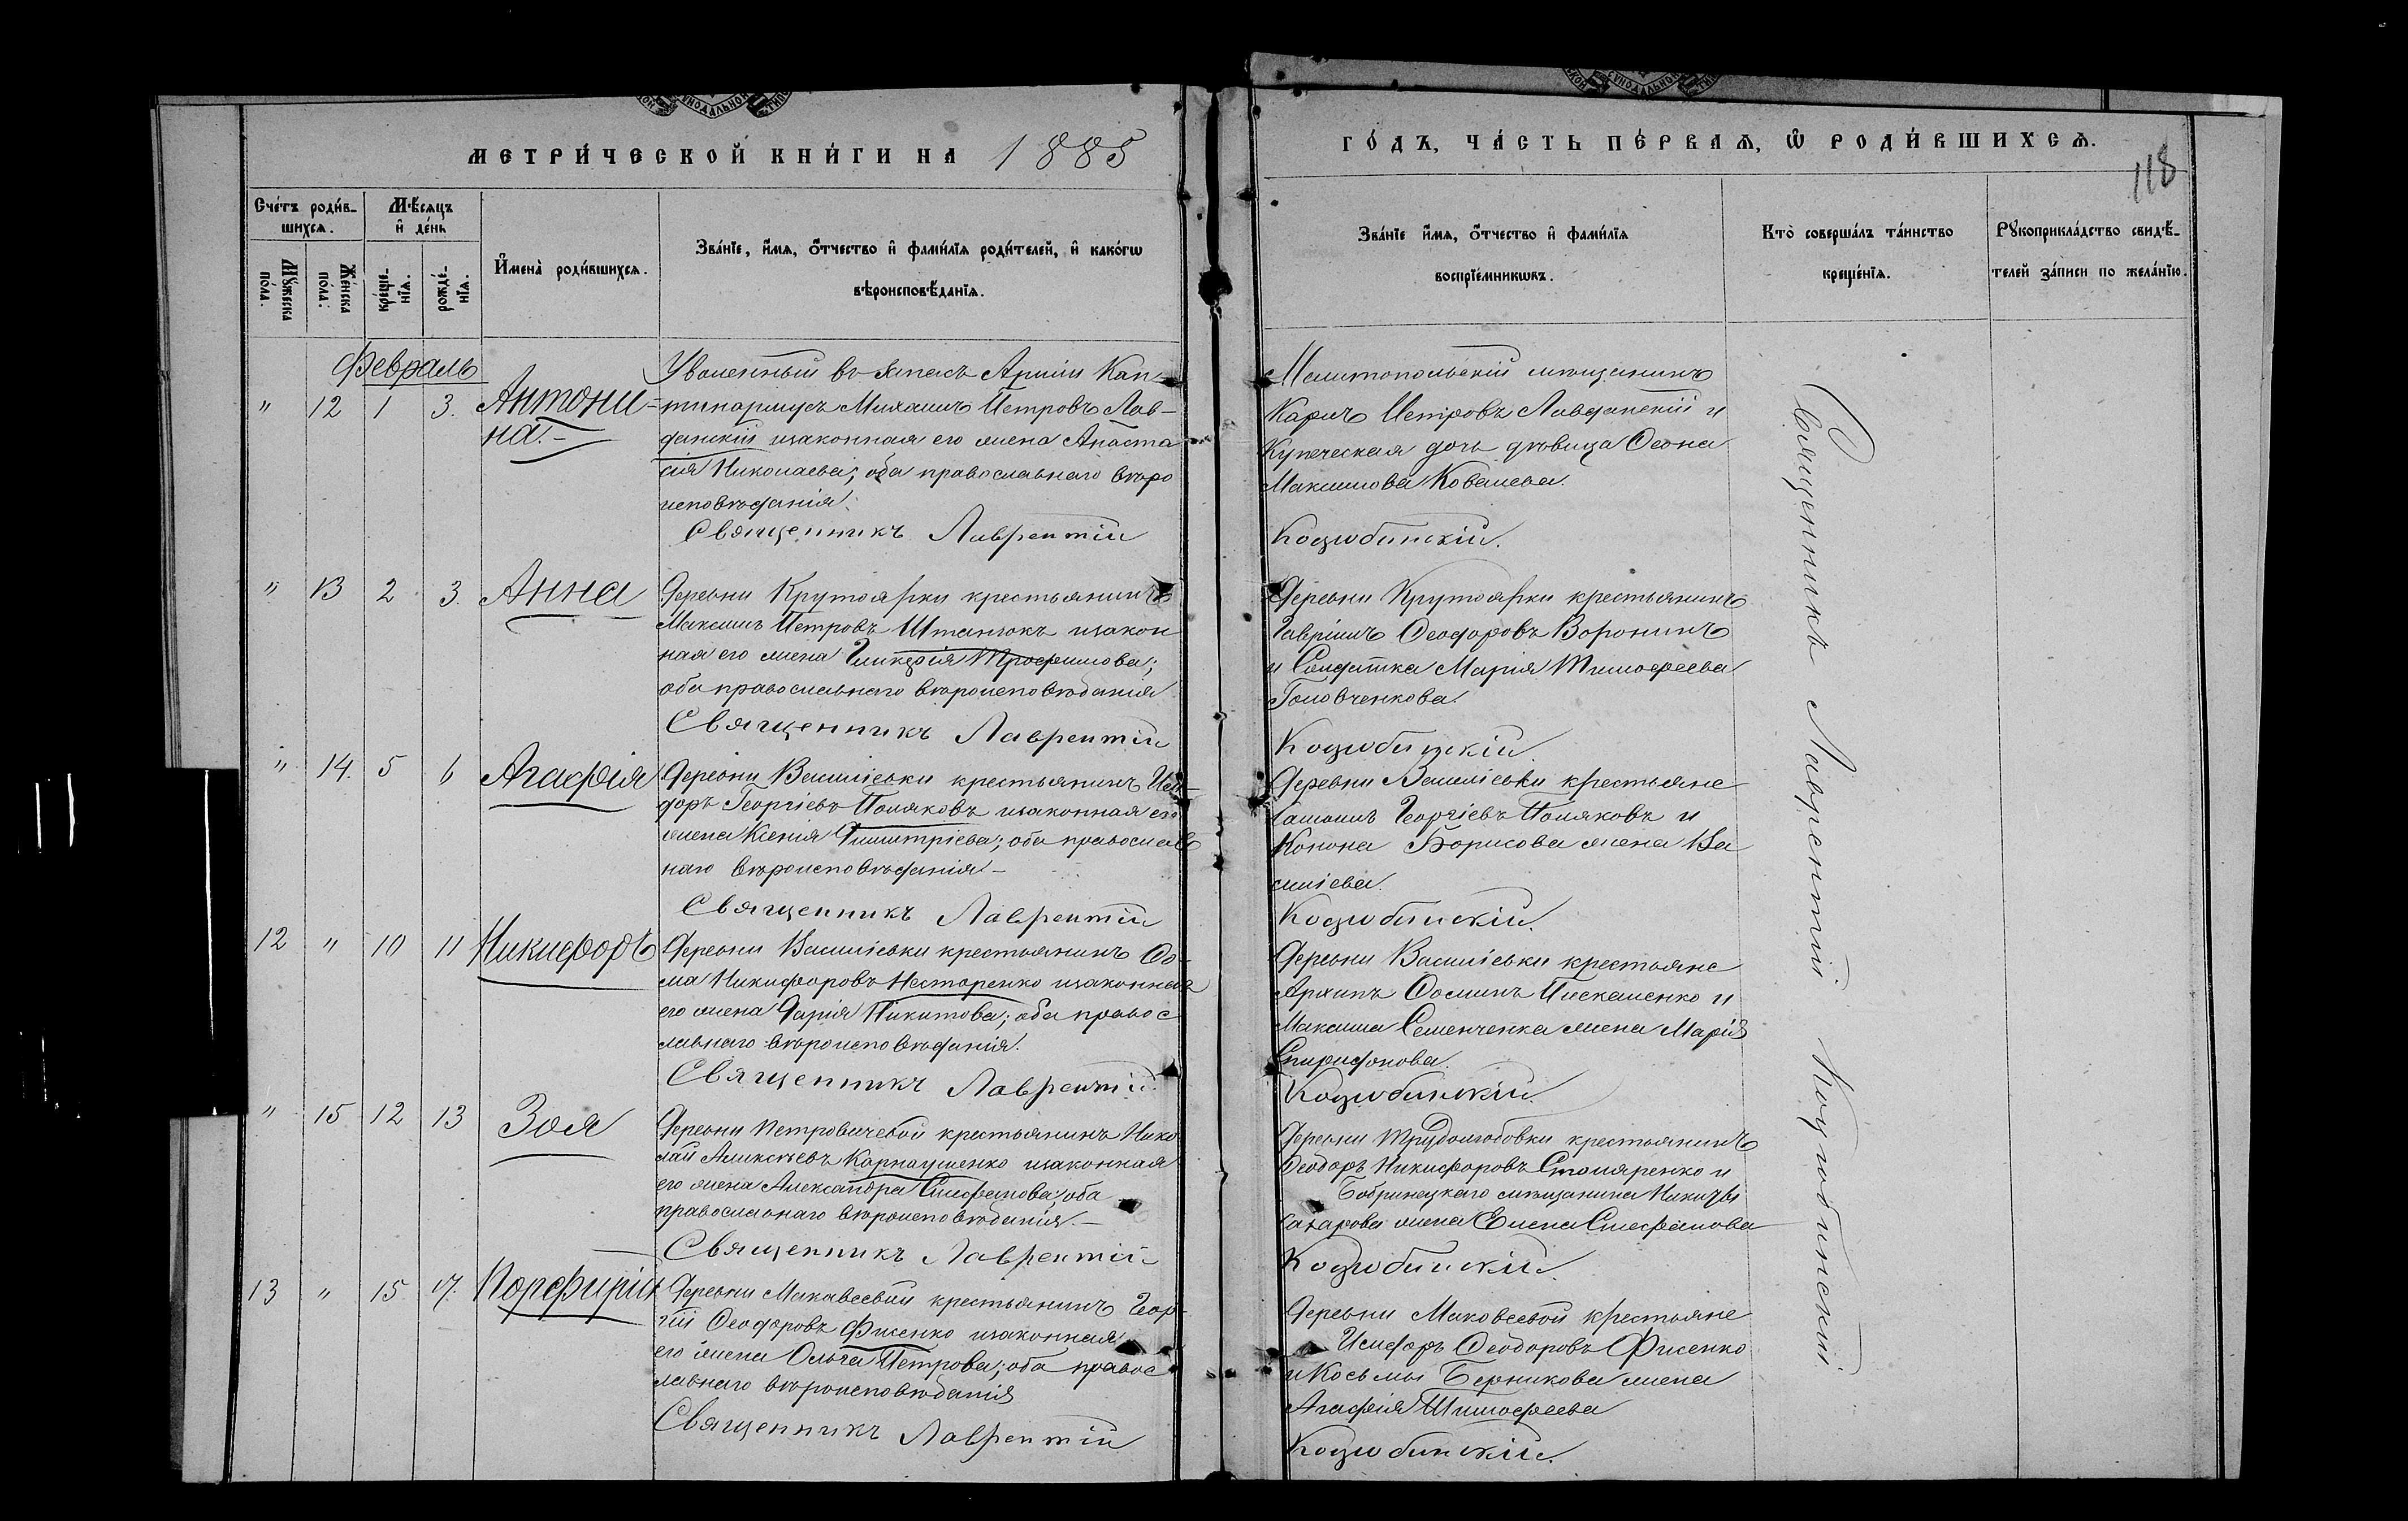 МЕТРИ́ЧЕСКОЙ КНИ́ГИ НА 1885
ГО́ДЪ, ЧА́СТЬ ПЕ́РВАѦ, Ѡ҆ РОДИ́ВШИХСѦ.
118
Сче́тъ роди́в-
шихсѧ.
Мѣ́сѧцъ
и҆ де́нь
И҆мена̀ роди́вшихсѧ.
Зва́нїе, и҆́мѧ, ѻ҆́тчество и҆ фами́лїѧ роди́телей, и҆ како́гѡ
вѣроисповѣ́данїѧ.
Мꙋ́жеска
по́ла.
Же́нска
по́ла.
креще́-
нїѧ.
рожде́-
нїѧ.
Зва́нїе и҆́мѧ, ѻ҆́тчество и҆ фами́лїѧ
воспрїе́мникѡвъ.
Кто̀ соверша́лъ та́инство
креще́нїѧ.
Рꙋкоприкла́дство свидѣ́-
телей за́писи по жела́нїю.
Февраль
" 12 1 3. Антони-
на.-
Уволенный въ запасъ Арміи Кап-
тинармусъ Михаилъ Петровъ Лав-
данскій изаконная его жена Анаста
сія Николаева; оба православнаго вѣро
исповѣданія.
Священникъ Лаврентій
Мелитопольскій мѣщанинъ
Карпъ Петровъ Лавданскій и
Купеческая дочь дѣвица Ѳеона
Максимова Ковалева.
Коцюбинскій.
" 13 2 3. Анна
Деревни Крутоярки крестьянинъ
Максимъ Петровъ Штанюкъ изакон
ная его жена Гликерія Трофимова;
оба православнаго вѣроисповѣданія
Священникъ Лаврентій
Деревни Крутоярки крестьянинъ
Гавріилъ Ѳеодоровъ Воронинъ
и Солдатка Марія Тимофеева
Головченкова.
Коцюбинскій.
" 14. 5 6 Агафія
Деревни Василіевки крестьянинъ Иси-
доръ Георгіевъ Поляковъ изаконная его
жена Ксенія Димитріева; оба православ
наго вѣроисповѣданія-
Священникъ Лаврентій
Деревни Василіевки крестьяне
Самоилъ Георгіевъ Поляковъ и
Конона Борисова жена Ва
силіева.
Коцюбинскій.
12 " 10 11 Никифоръ
Деревни Василіевки крестьянинъ Ѳо-
ма Никифоровъ Несторенко изаконная
его жена Дарія Никитова; оба правос
лавнаго вѣроисповѣданія.
Священникъ Лаврентій
Деревни Василіевки крестьяне
Архипъ Ѳоминъ Пискаленко и
Максима Семенченка жена Марія
Спиридонова.
Коцюбинскій.
" 15 12 13 Зоя
Деревни Петровичевой крестьянинъ Нико
лай Алексѣевъ Карнаушенко изаконная
его жена Александра Стефанова; оба
православнаго вѣроисповѣданія.-
Священникъ Лаврентій
Деревни Трудолюбовки крестьянинъ
Ѳеодоръ Никифоровъ Столяренко и
Бобринецкаго мѣщанина Никиты
Сахарова жена Елена Стефанова
Коцюбинскій.
13 " 15 17. Порфирій
Деревни Макавеевой крестьянинъ Геор-
гій Ѳеодоровъ Фисенко изаконная
его жена Ольга Петрова; оба правос
лавнаго вѣроисповѣданія
Священникъ Лаврентій
Деревни Маковеевой крестьяне
Исидоръ Ѳеодоровъ Фисенко
и Косьмы Берникова жена
Агафія Тимофеева
Коцюбинскій.
Священникъ Лаврентій Коцюбинскій